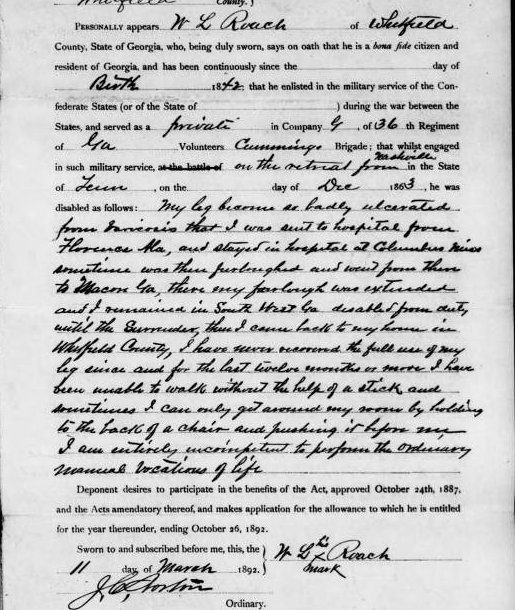 Whitfield County. }
PERSONALLY appears W L Roach of Whitfield
County, State of Georgia, who, being duly sworn, says on oath that he is a bona fide citizen and
resident of Georgia, and has been continuously since the day of
Birth 1842; that he enlisted in the military service of the Con-
federate States (or of the State of ) during the war between the
States, and served as a private in Company G, of 36 th Regiment
of Ga Volunteers Cummings Brigade; that whilst engaged
in such military service, at the battle of on the retreat from Nashville in the State
of Tenn, on the day of Dec 1863, he was
disabled as follows: My leg become so badly ulcerated
from varicosis that I was sent to hospital from
Florence Ala, and stayed in hospital at Columbus Miss
sometime was then furloughed and went from there
to Macon Ga, there my furlough was extended
and I remained in South West Ga disabled from duty
until the Surrender, then I came back to my home in
Whitfield County, I have never recovered the full use of my
leg since and for the last twelve months or more I have
been unable to walk without the help of a stick and
sometimes I can only get around my room by holding
to the back of a chair and pushing it before me
I am entirely incompetent to perform the ordinary
manual vocations of life
Deponent desires to participate in the benefits of the Act, approved October 24th, 1887,
and the Acts amendatory thereof, and makes application for the allowance to which he is entitled
for the year thereunder, ending October 26, 1892.
Sworn to and subscribed before me, this, the } W L his x Roach
11 day, of March 1892. } mark
J. C. Norton
Ordinary.